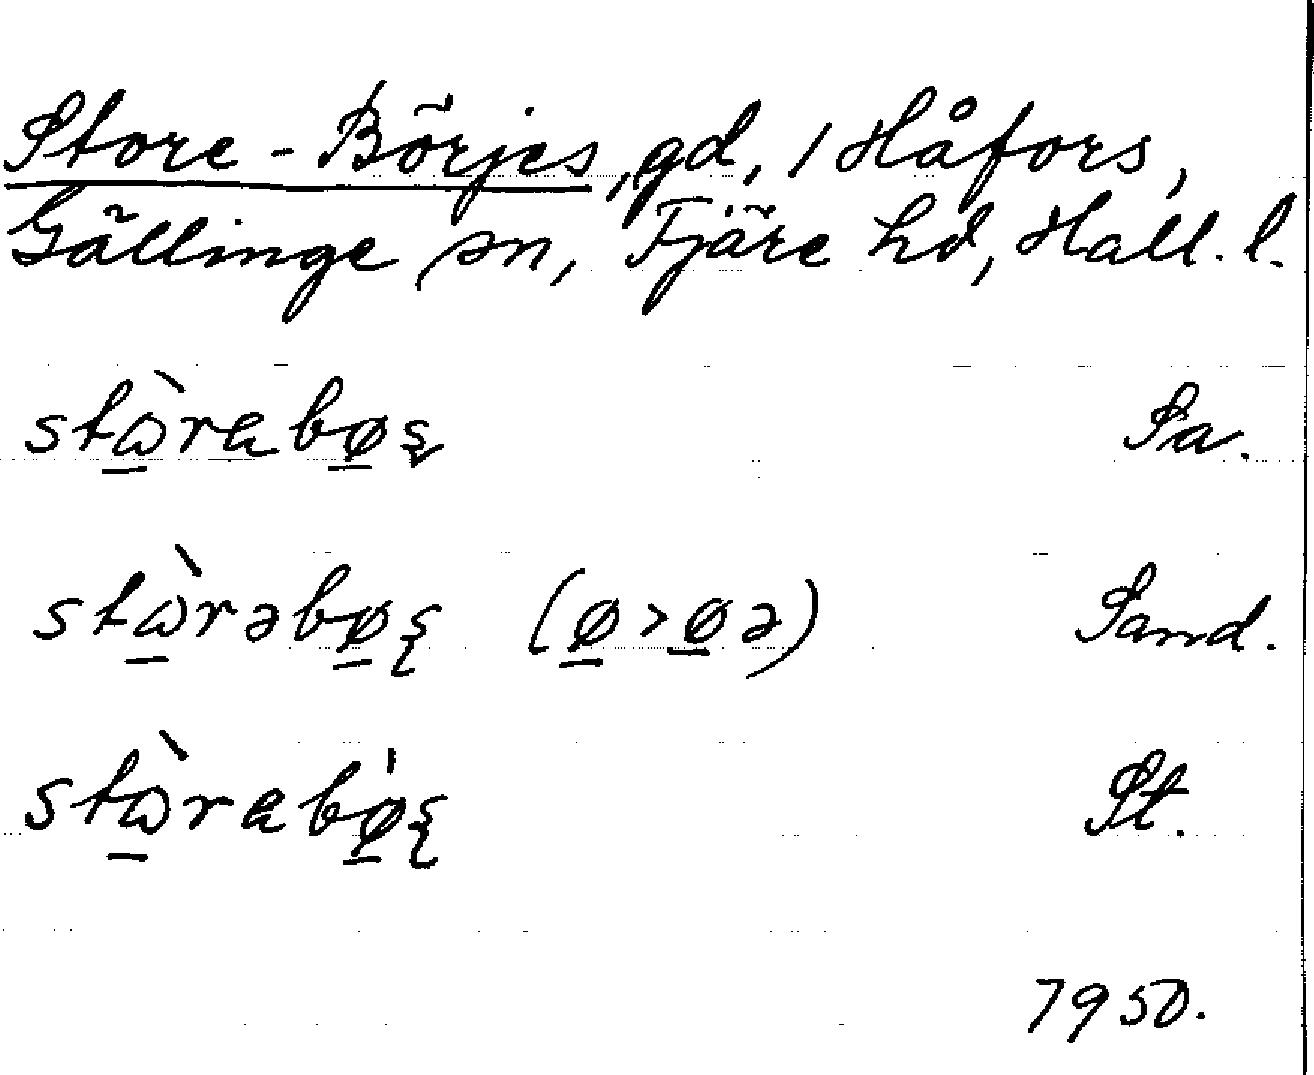 Store-Börjes, gd, 1 Håfors,
Gällinge sn, Fjäre hd, Hall. l.
stὼ̲rabø̲ʂ Sa.
stὼ̲rəbø̲ʂ (ø̲>ø̲ə) Sand.
stὼ̲rabø̲̍ʂ St.
1950.